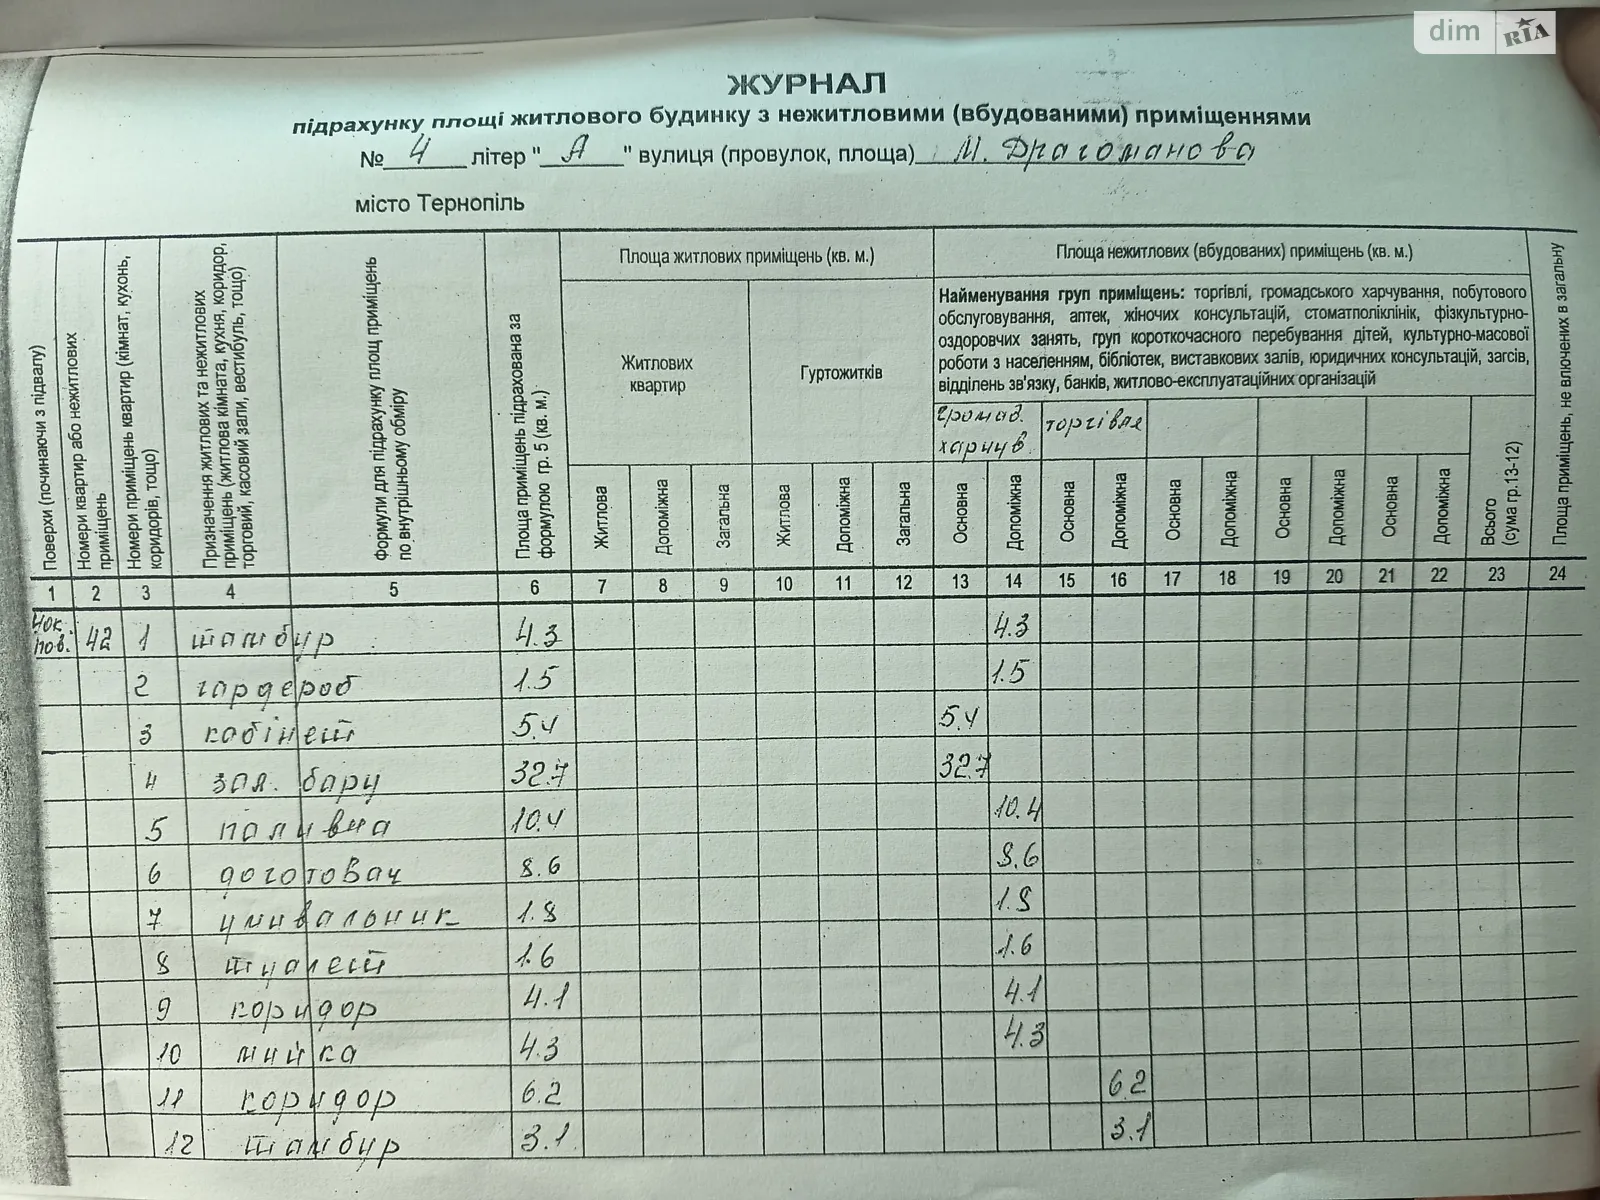 dim RIA
ЖУРНАЛ
підрахунку площі житлового будинку з нежитловими (вбудованими) приміщеннями
№ 4 літер " А " вулиця (провулок, площа) М. Драгоманова
місто Тернопіль
Поверхи (починаючи з підвалу)
Номери квартир або нежитлових
приміщень
Номери приміщень квартир (кімнат, кухонь,
коридорів, тощо)
Призначення житлових та нежитлових
приміщень (житлова кімната, кухня, коридор,
торговий, касовий зали, вестибуль, тощо)
Формули для підрахунку площ приміщень
по внутрішньому обміру
Площа приміщень підрахована за
формулою гр. 5 (кв. м.)
Площа житлових приміщень (кв. м.)
Житлових
квартир
Гуртожитків
Площа нежитлових (вбудованих) приміщень (кв. м.)
Найменування груп приміщень: торгівлі, громадського харчування, побутового
обслуговування, аптек, жіночих консультацій, стоматполіклінік, фізкультурно-
оздоровчих занять, груп короткочасного перебування дітей, культурно-масової
роботи з населенням, бібліотек, виставкових залів, юридичних консультацій, загсів,
відділень зв'язку, банків, житлово-експлуатаційних організацій
громад.
харчув.
торгівля
Житлова Допоміжна Загальна Житлова Допоміжна Загальна Основна Допоміжна Основна Допоміжна Основна Допоміжна Основна Допоміжна Основна Допоміжна
Всього
(сума гр.13-12)
Площа приміщень, не влючених в загальну
1 2 3 4 5 6 7 8 9 10 11 12 13 14 15 16 17 18 19 20 21 22 23 24
цок.
пов. 42 1 тамбур 4.3 4.3
2 гардероб 1.5 1.5
3 кабінет 5.4 5.4
4 зал. бару 32.7 32.7
5 паливна 10.4 10.4
6 доготовач 8.6 8.6
7 умивальник 1.8 1.8
8 туалет 1.6 1.6
9 коридор 4.1 4.1
10 мийка 4.3 4.3
11 коридор 6.2 6.2
12 тамбур 3.1 3.1